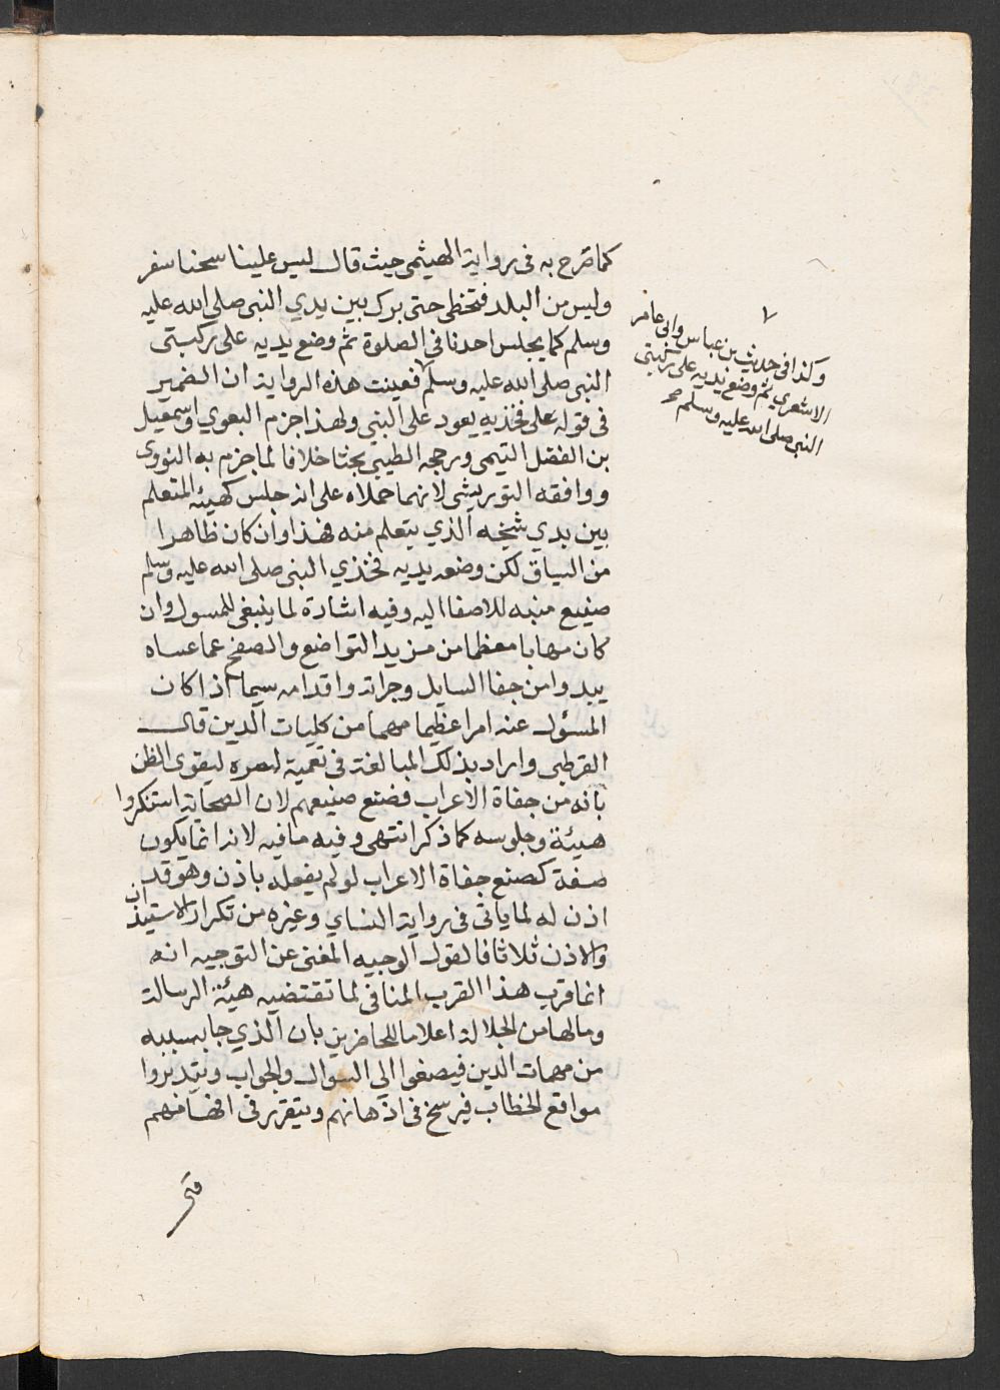 كما صرح به في رواية الهيثمي حيث قال ليس علينا سحنا سفر
وليس من البلد فتخطى حتى برك بين يدي النبي صلى الله عليه
وسلم كما يجلس احدنا في الصلوة ثم وضع يديه على ركبتى
النبي صلى الله عليه وسلم فعينت هذه الرواية ان الضمير
فى قوله على فخذيه يعود على النبي ولهذا جزم البغوي واسمعيل
بن الفضل التيمى ورجحه الطيبي بحثا خلافا لما جزم به النووى
ووافقه التوربشى لانهما حملاه على انه جلس كهيئة المتعلم
بين يدي شيخه الذي يتعلم منه فهذا وان كان ظاهرا
من السياق لكن وضعه يديه فخذي النبى صلى الله عليه وسلم
صنيع منبه للاصغا اليه وفيه اشارة لما ينبغى للمسول وان
كان مهابا معظما من مزيد التواضع والصفح عما عساه
يبدوا من جفا السايل وجراته واقدامه سيما اذا كان
المسؤل عنه امرا عظيما مهما من كليات الدين قال
القرطبى واراد بذلك المبالغة فى تعمية امره ليقوى الظن
بانه من جفاة الاعراب فصنع صنيعهم لان الصحابة استنكروا
هيئة وجلوسه كما ذكر انتهى وفيه ما فيه لانه انما يكون
صفة كصنع جفاة الاعراب لو لم يفعله باذن وهو قد
اذن له لما ياتى فى رواية النساي وغيره من تكرار الاستيذان
والاذن ثلاثا فالقول الوجيه المغنى عن التوجيه انه
انما قرب هذا القرب المنافى لما تقتضيه هيئة الرسالة
وما لها من الجلالة اعلاما للحاضرين بان الذي جا بسببه
من مهمات الدين فيصغوا الى السوال والجواب ويتدبروا
مواقع الخطاب فيرسخ فى اذهانهم ويتقرر فى افهامهم
٧
وكذا فى حديث بن عباس وابى عامر
الاشعري ثم وضع يديه على ركبتى
النبى صلى الله عليه وسلم صح